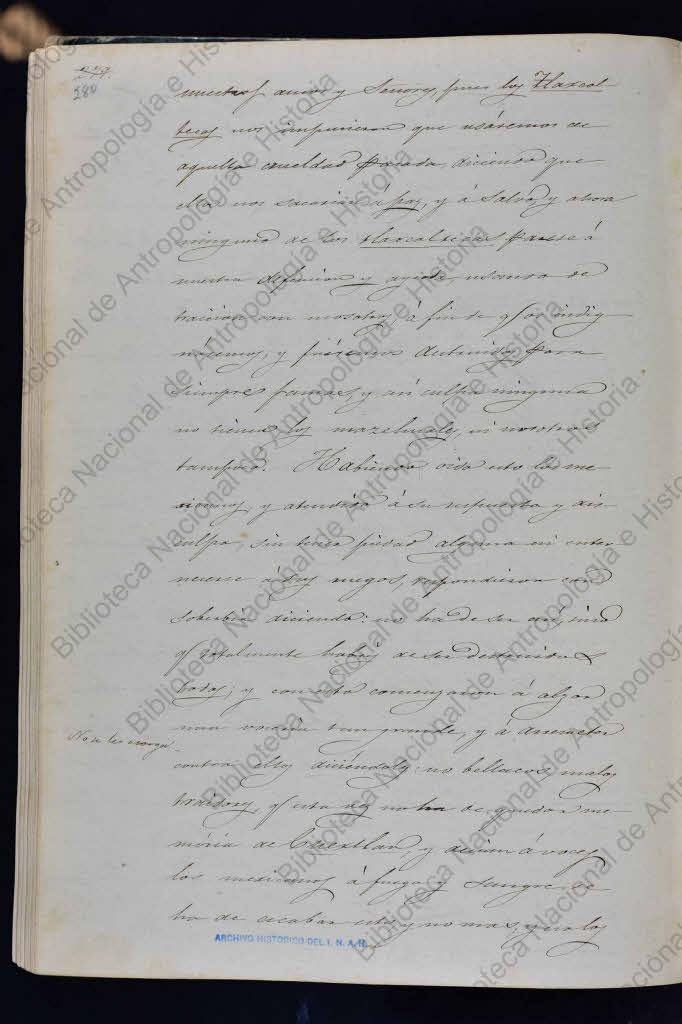 280
nuestros amos y Señores, pues los Tlaxcal-
tecas nos impusieron que usáremos de
aquella crueldad pasada, diciendo que
ellos nos sacarian á paz, y á salvo y ahora
ninguno de los tlaxcaltecas parese á
nuestra defension y ayuda, usando de
traicion con nosotros, á fin de q̃ os indig-
násemos, y fuésemos destruidos para
siempre jamas, y asi culpa ninguna
no tienen los mazehuales, ni nosotros
tampoco. Habiendo oido esto los me-
xicanos, y atendido á su respuesta y dis-
culpa, sin tener piedad alguna ni enter-
necerse á sus ruegos, respondieron con
soberbia diciendo: no ha de ser asi, sino
q̃ totalmente habeis de ser destruidos
todos; y con esto comenzaron á alzar
una voceria tan grande, y á arremeter
contra ellos diciendoles: no bellacos, malos
traidores, q̃ esta vez no ha de quedar me-
moria de Cuextlan, y decian á voces
los mexicanos á fuego y sangre se
ha de acabar esto y no mas, y en los
No se les otorga.
ARCHIVO HISTORICO DEL I. N. A. H.
Biblioteca Nacional de Antropología e Historia